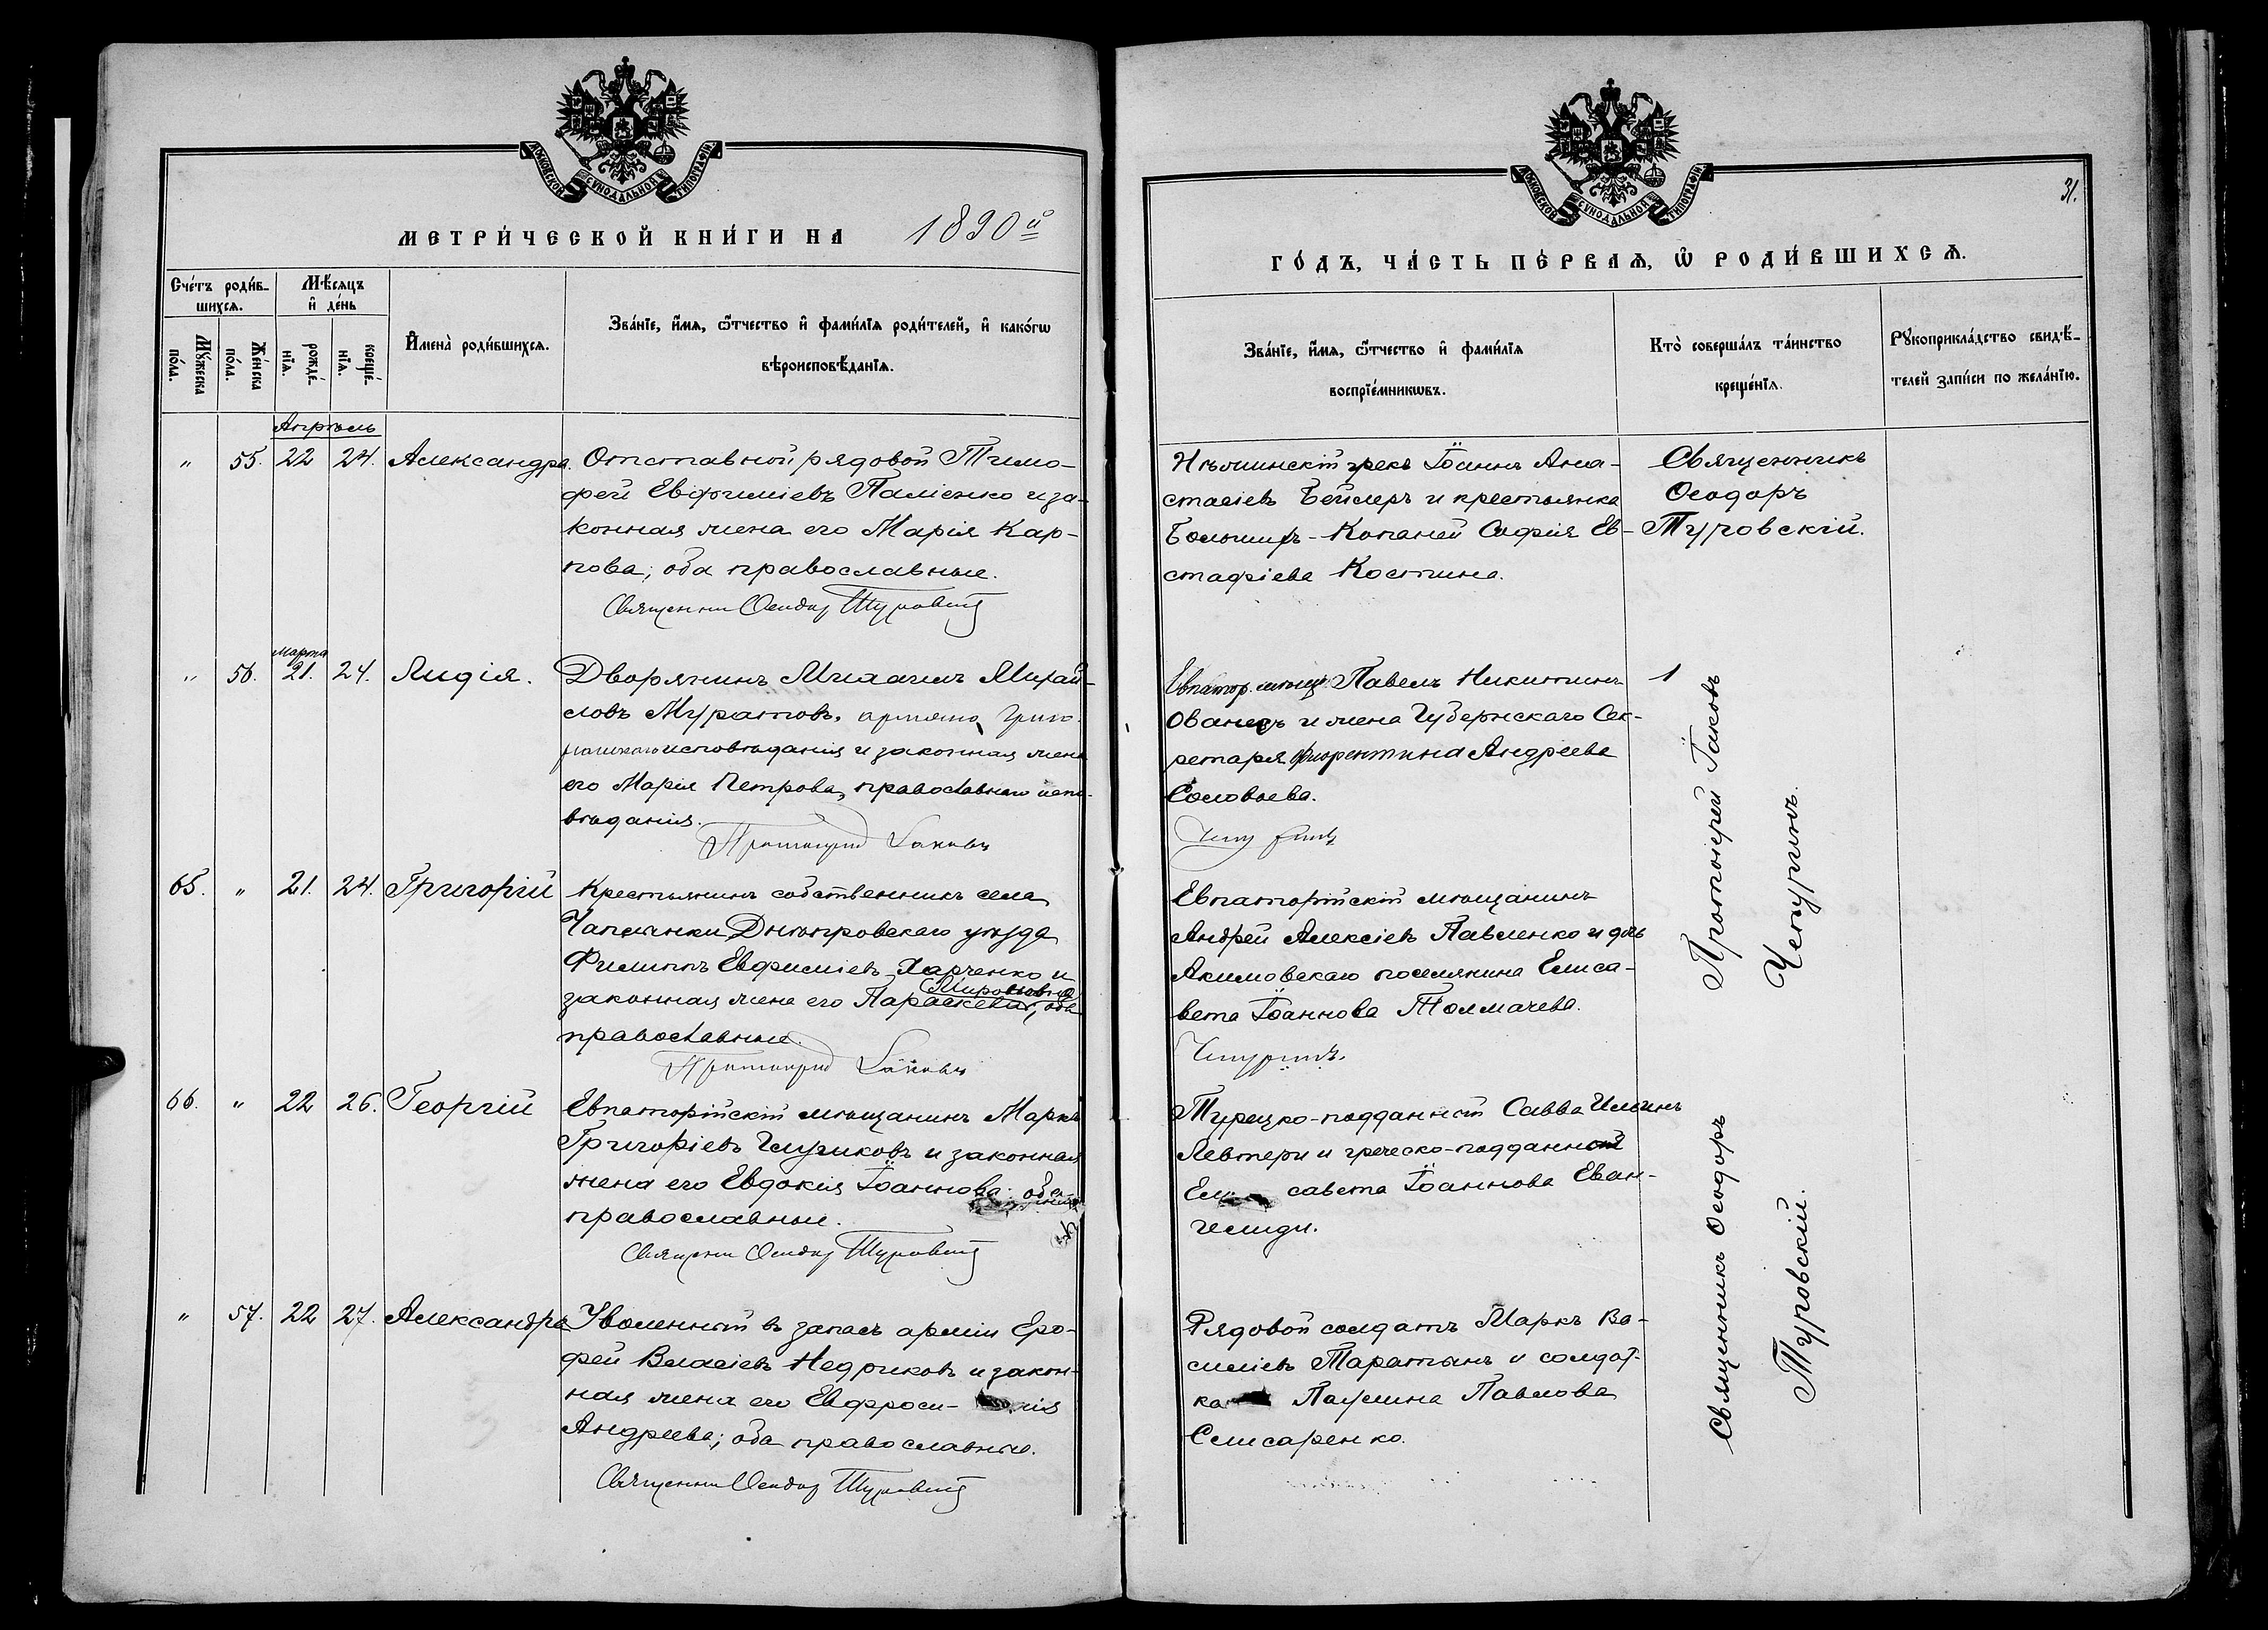 МОСКОВСКОЙ СѴНОДАЛЬНОЙ ТИПОГРАФІИ
МЕТРИ́ЧЕСКОЙ КНИ́ГИ НА 1890й
Сче́тъ роди́в-
шихсѧ.
Мѣ́сѧцъ
и҆ де́нь
Мꙋ́жеска
по́ла.
Же́нска
по́ла.
рожде́-
нїѧ.
креще́-
нїѧ.
И҆мена̀ роди́вшихсѧ.
Зва́нїе, и҆́мѧ, ѻ҆́тчество и҆ фами́лїѧ роди́телей, и҆ како́гѡ
вѣроисповѣ́данїѧ.
Апрѣль
" 55. 22 24. Александра. Отставной рядовой Тимо-
фей Евфиміевъ Паліенко и за-
конная жена его Марія Кар-
пова; оба православные.
Священни Ѳеодор Туровскій
Марта
" 56. 21. 24. Лидія. Дворянинъ Михаилъ Михай-
ловъ Муратовъ, армяно Григо-
ріанскаго исповѣданія и законная жена
его Марія Петрова, православнаго испо-
вѣданія.
Протоіерей Іаковъ
65. " 21. 24. Григорій Крестьянинъ собственникъ села
Чаплинки Днѣпровскаго уѣзда
Филиппъ Евфиміевъ Харченко и
Миронова
законная жена его Параскева, оба
православные.
Протоіерей Іаковъ
66. " 22 26. Георгій Евпаторійскій мѣщанинъ Маркъ
Григоріевъ и законная
жена его Евдокія Іоаннова; оба
православные.
Священни Ѳеодор Туровскій
" 57. 22 27. Александра Уволенный въ запасъ арміи Еро-
фей Власіевъ Недриковъ и закон-
ная жена его Евфроси- нія
Андреева; оба православные.
Священни Ѳеодор Туровскій
31.
МОСКОВСКОЙ СѴНОДАЛЬНОЙ ТИПОГРАФІИ
ГО́ДЪ, ЧА́СТЬ ПЕ́РВАѦ, Ѡ҆ РОДИ́ВШИХСѦ.
Зва́нїе, и҆́мѧ, ѻ҆́тчество и҆ фами́лїѧ
воспрїе́мникѡвъ.
Кто̀ соверша́лъ та́инство
креще́нїѧ.
Рꙋкоприкла́дство свидѣ́-
телей за́писи по жела́нїю.
Нѣжинскій грекъ Іоаннъ Ана-
стасіевъ Бейлеръ и крестьянка
Большихъ-Копаней Софія Ев-
стафіева Костина.
Священникъ
Ѳеодоръ
Туровскій.
Евпатор. мѣщ. Павелъ Никитинъ
Ованецъ и жена Губернскаго Сек-
ретаря Флорентина Андреева
Соловьева.
Чепуринъ
Евпаторійскій мѣщанинъ
Андрей Алексіевъ Павленко и дочь
Акимовскаго поселянина Елиса-
вета Іоаннова Толмачева.
Чепуринъ.
Протоіерей Іаковъ
Чепуринъ.
Турецко-подданный Савва Ильинъ
Левтери и греческо-подданной
Ели савета Іоаннова Еван-
гелиди.
Рядовой солдатъ Маркъ Ва-
силіевъ Таратынъ и солдат-
ка Паулина Павлова
Слисаренко.
Священникъ Ѳеодоръ
Туровскій.